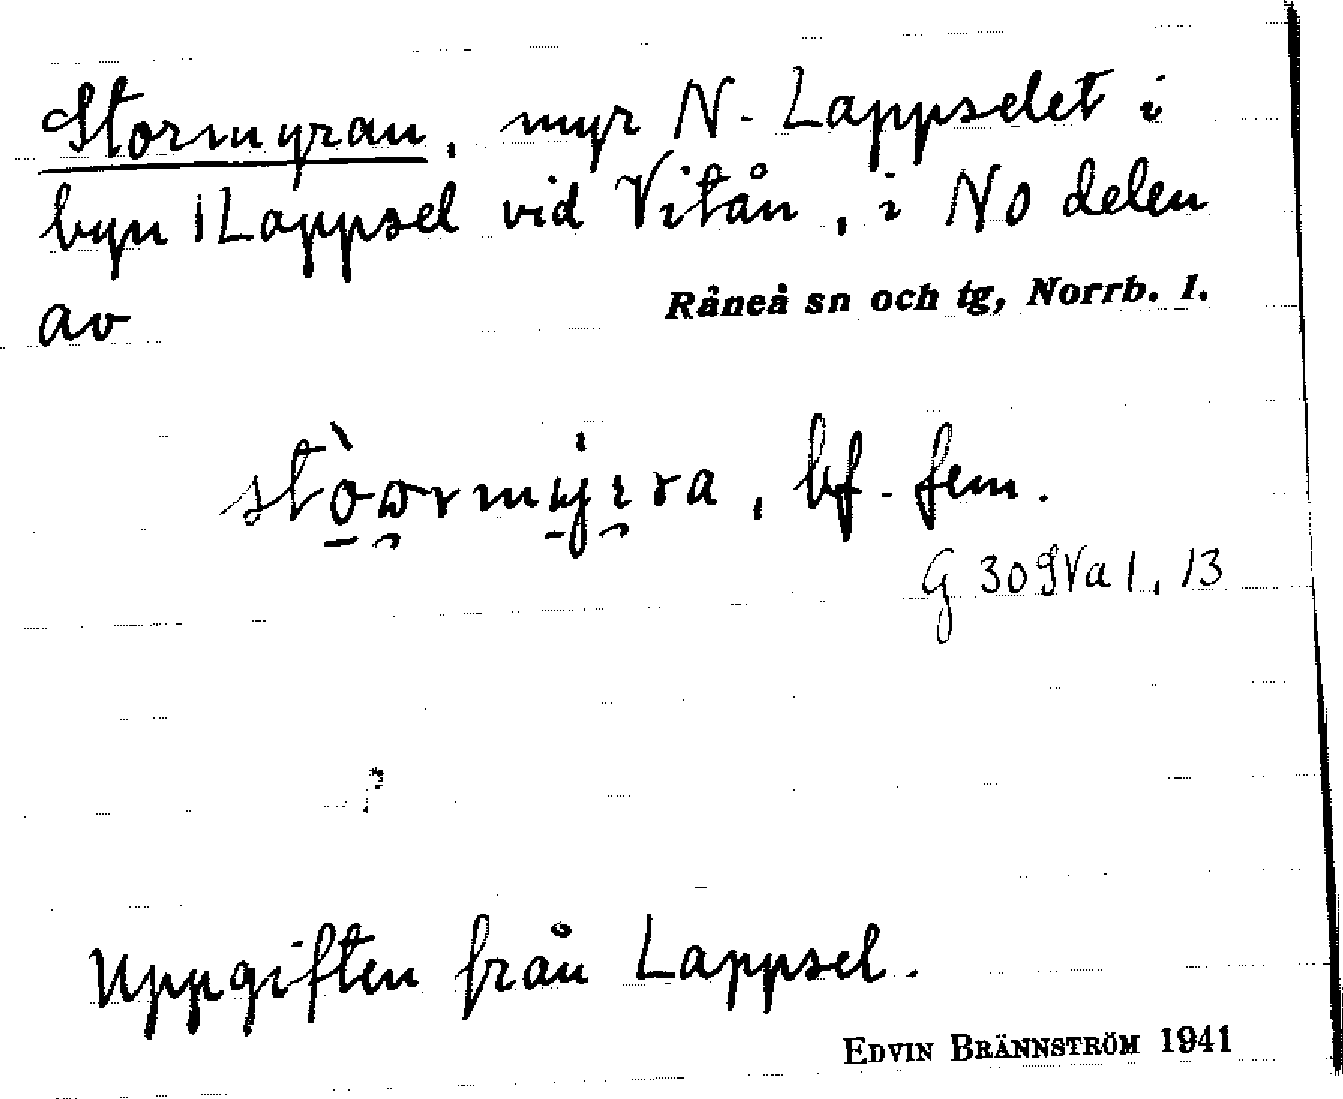 Stormyran, myr N. Lappselet i
byn Lappsel vid Vitån, i NO delen
av Råneå sn och tg, Norrb. l.
bf. fem.
G 309Va 1, 13
Uppgiften från Lappsel.
EDVIN BRÄNNSTRÖM 1941